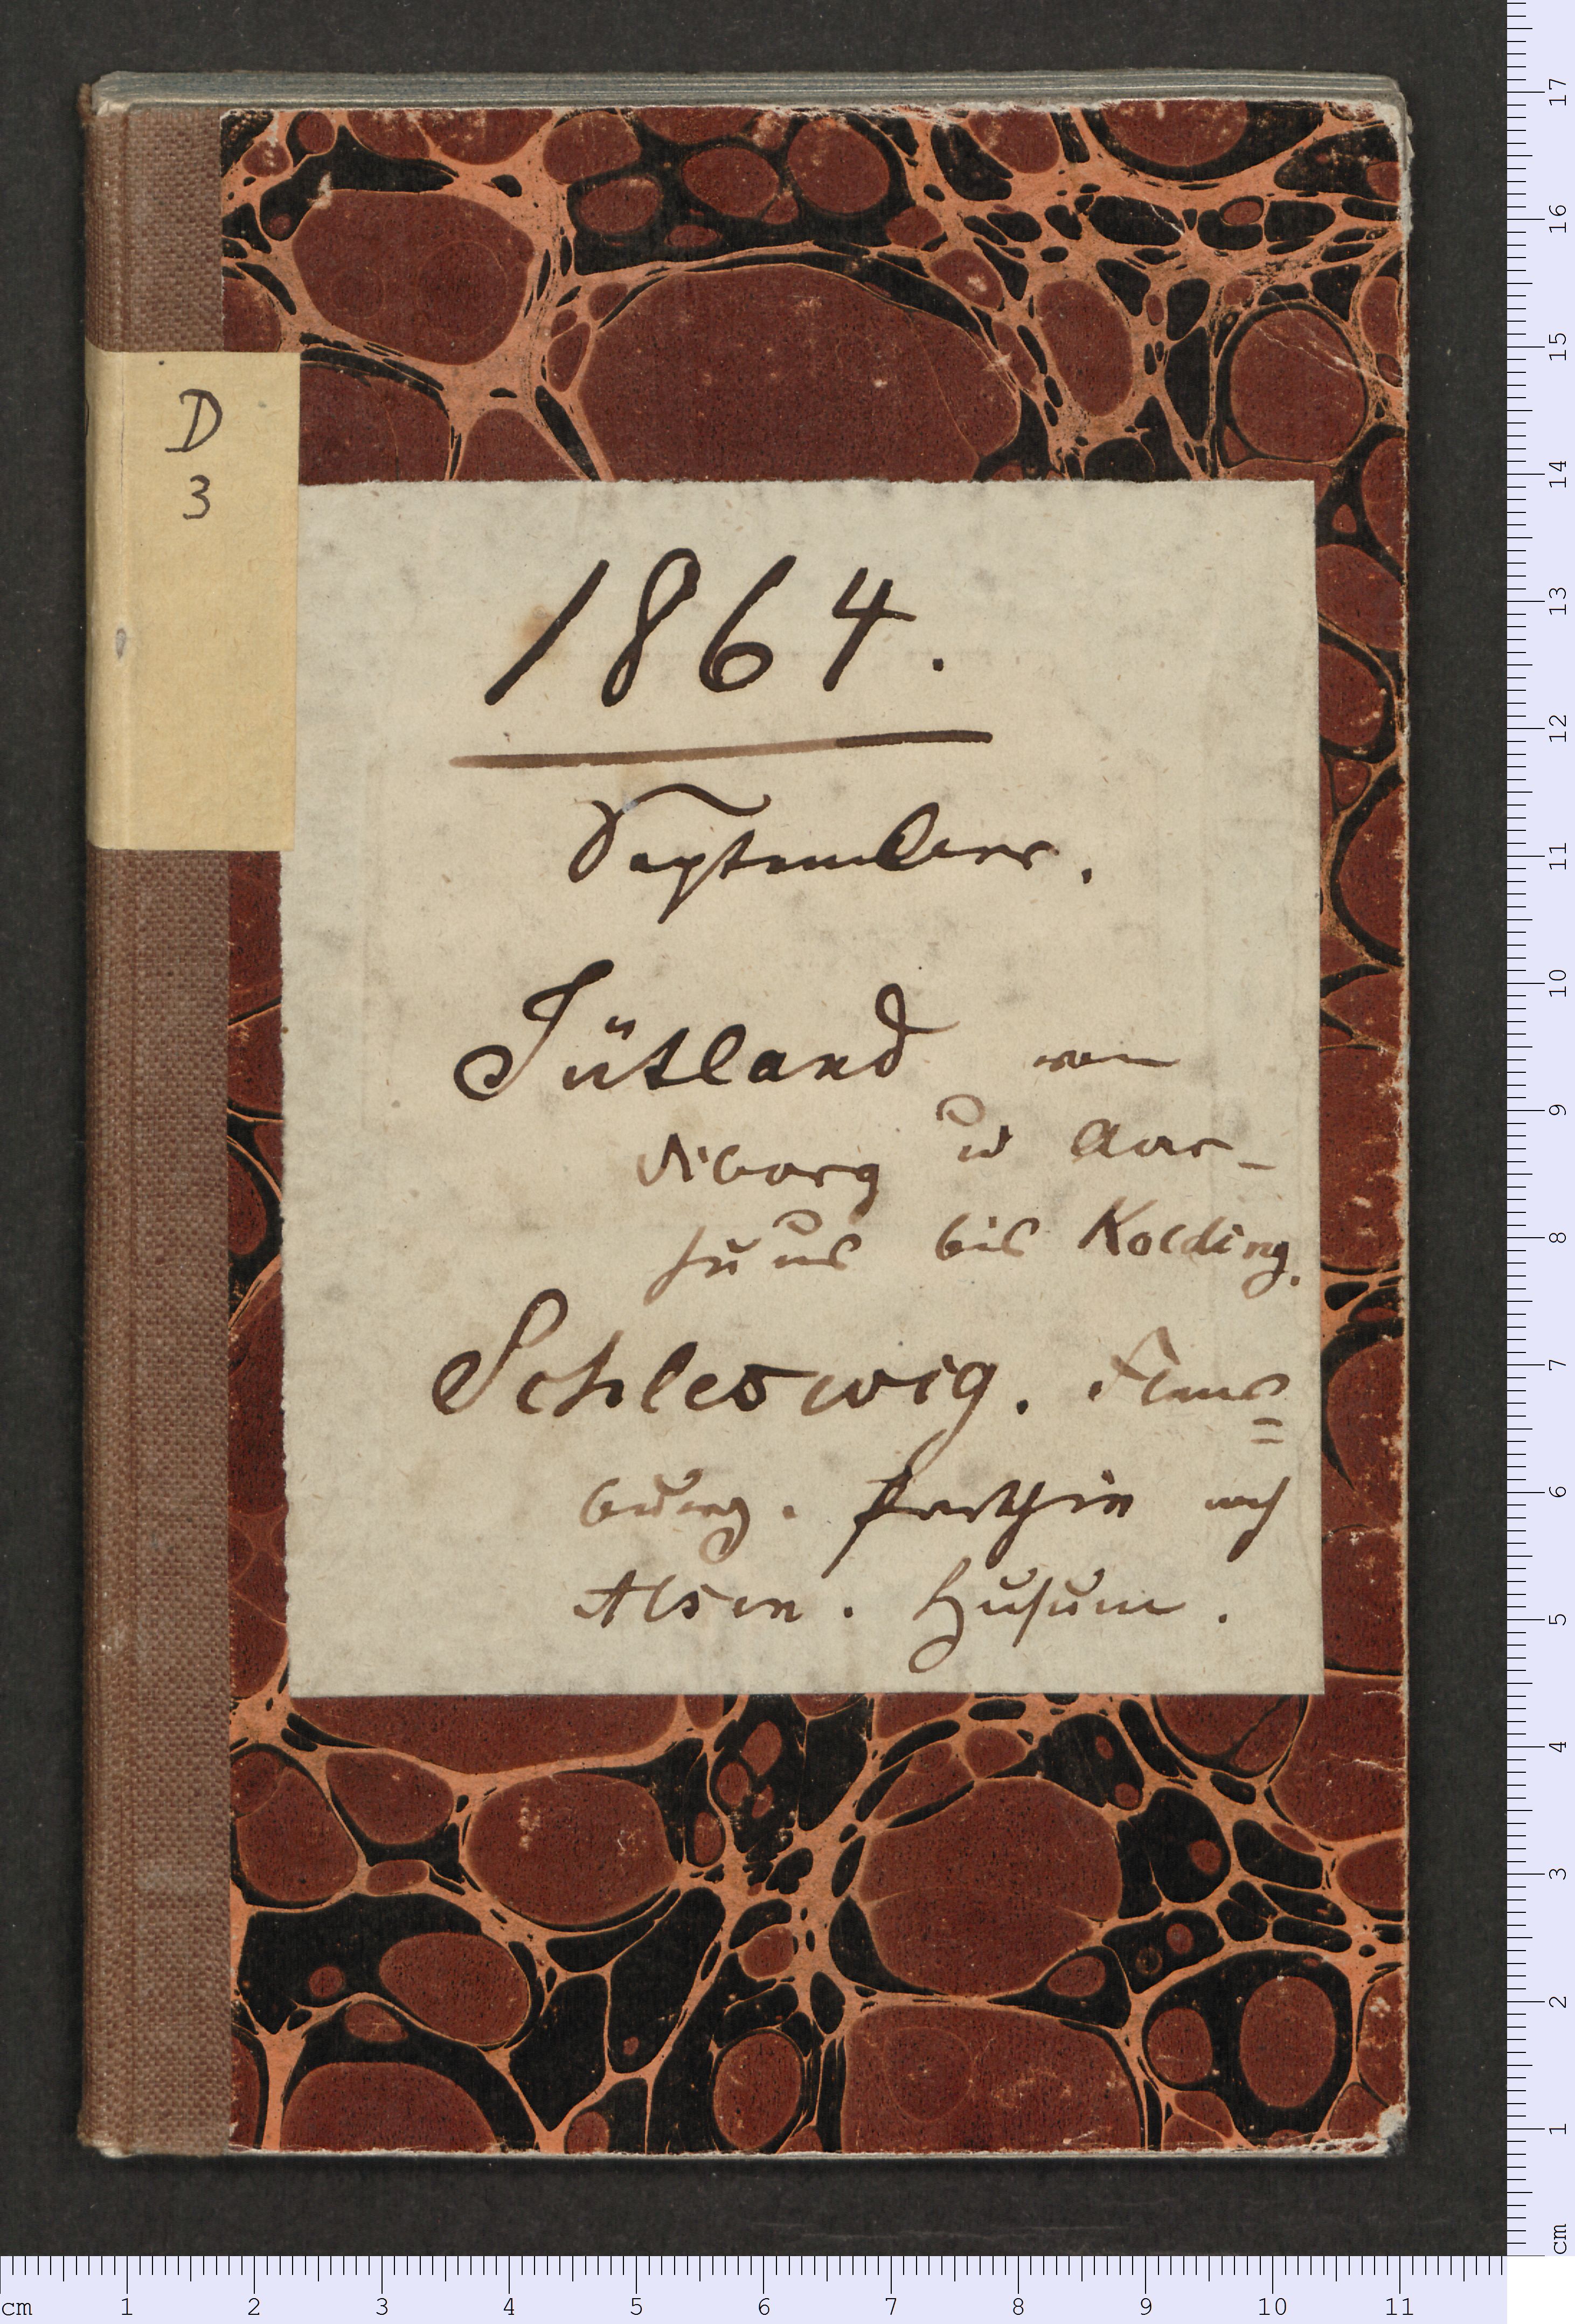 D
3
1864.
September.
Jütland von
Viborg u Aar-
huus bis Kolding.
Schleswig. Flens=
burg. nach
Alsen. Husum.
17
16
15
14
13
12
11
10
9
8
7
6
5
4
3
2
1
cm
cm 1 2 3 4 5 6 7 8 9 10 11